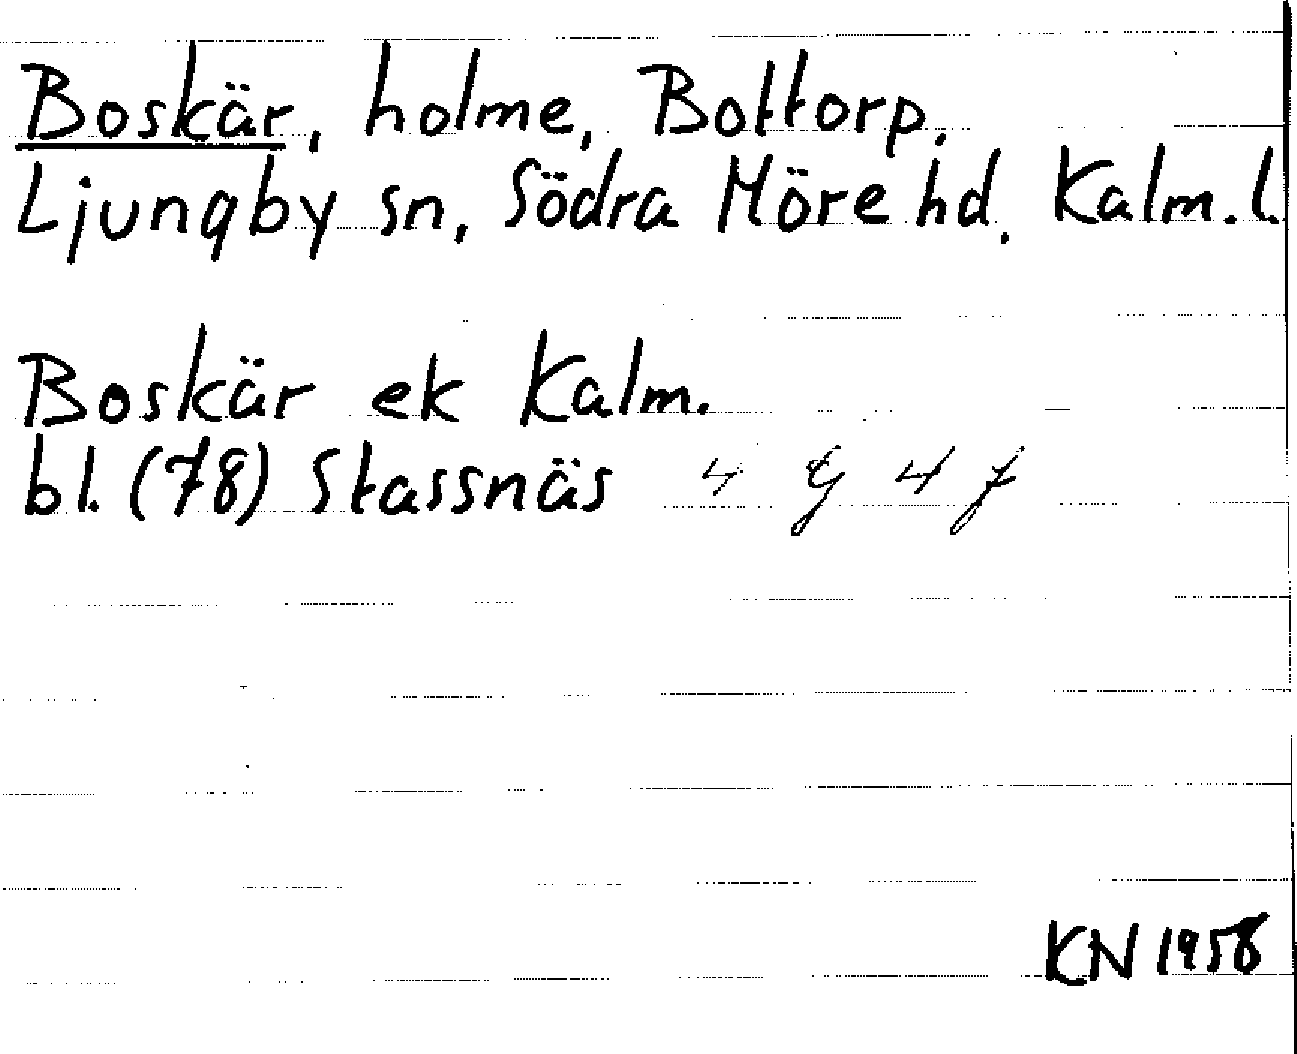 Boskär, holme, Bottorp,
Ljungby sn, Södra Möre hd. Kalm. l.
Boskär ek Kalm.
bl. (78) Stassnäs 4 G 4 f
KN 1958